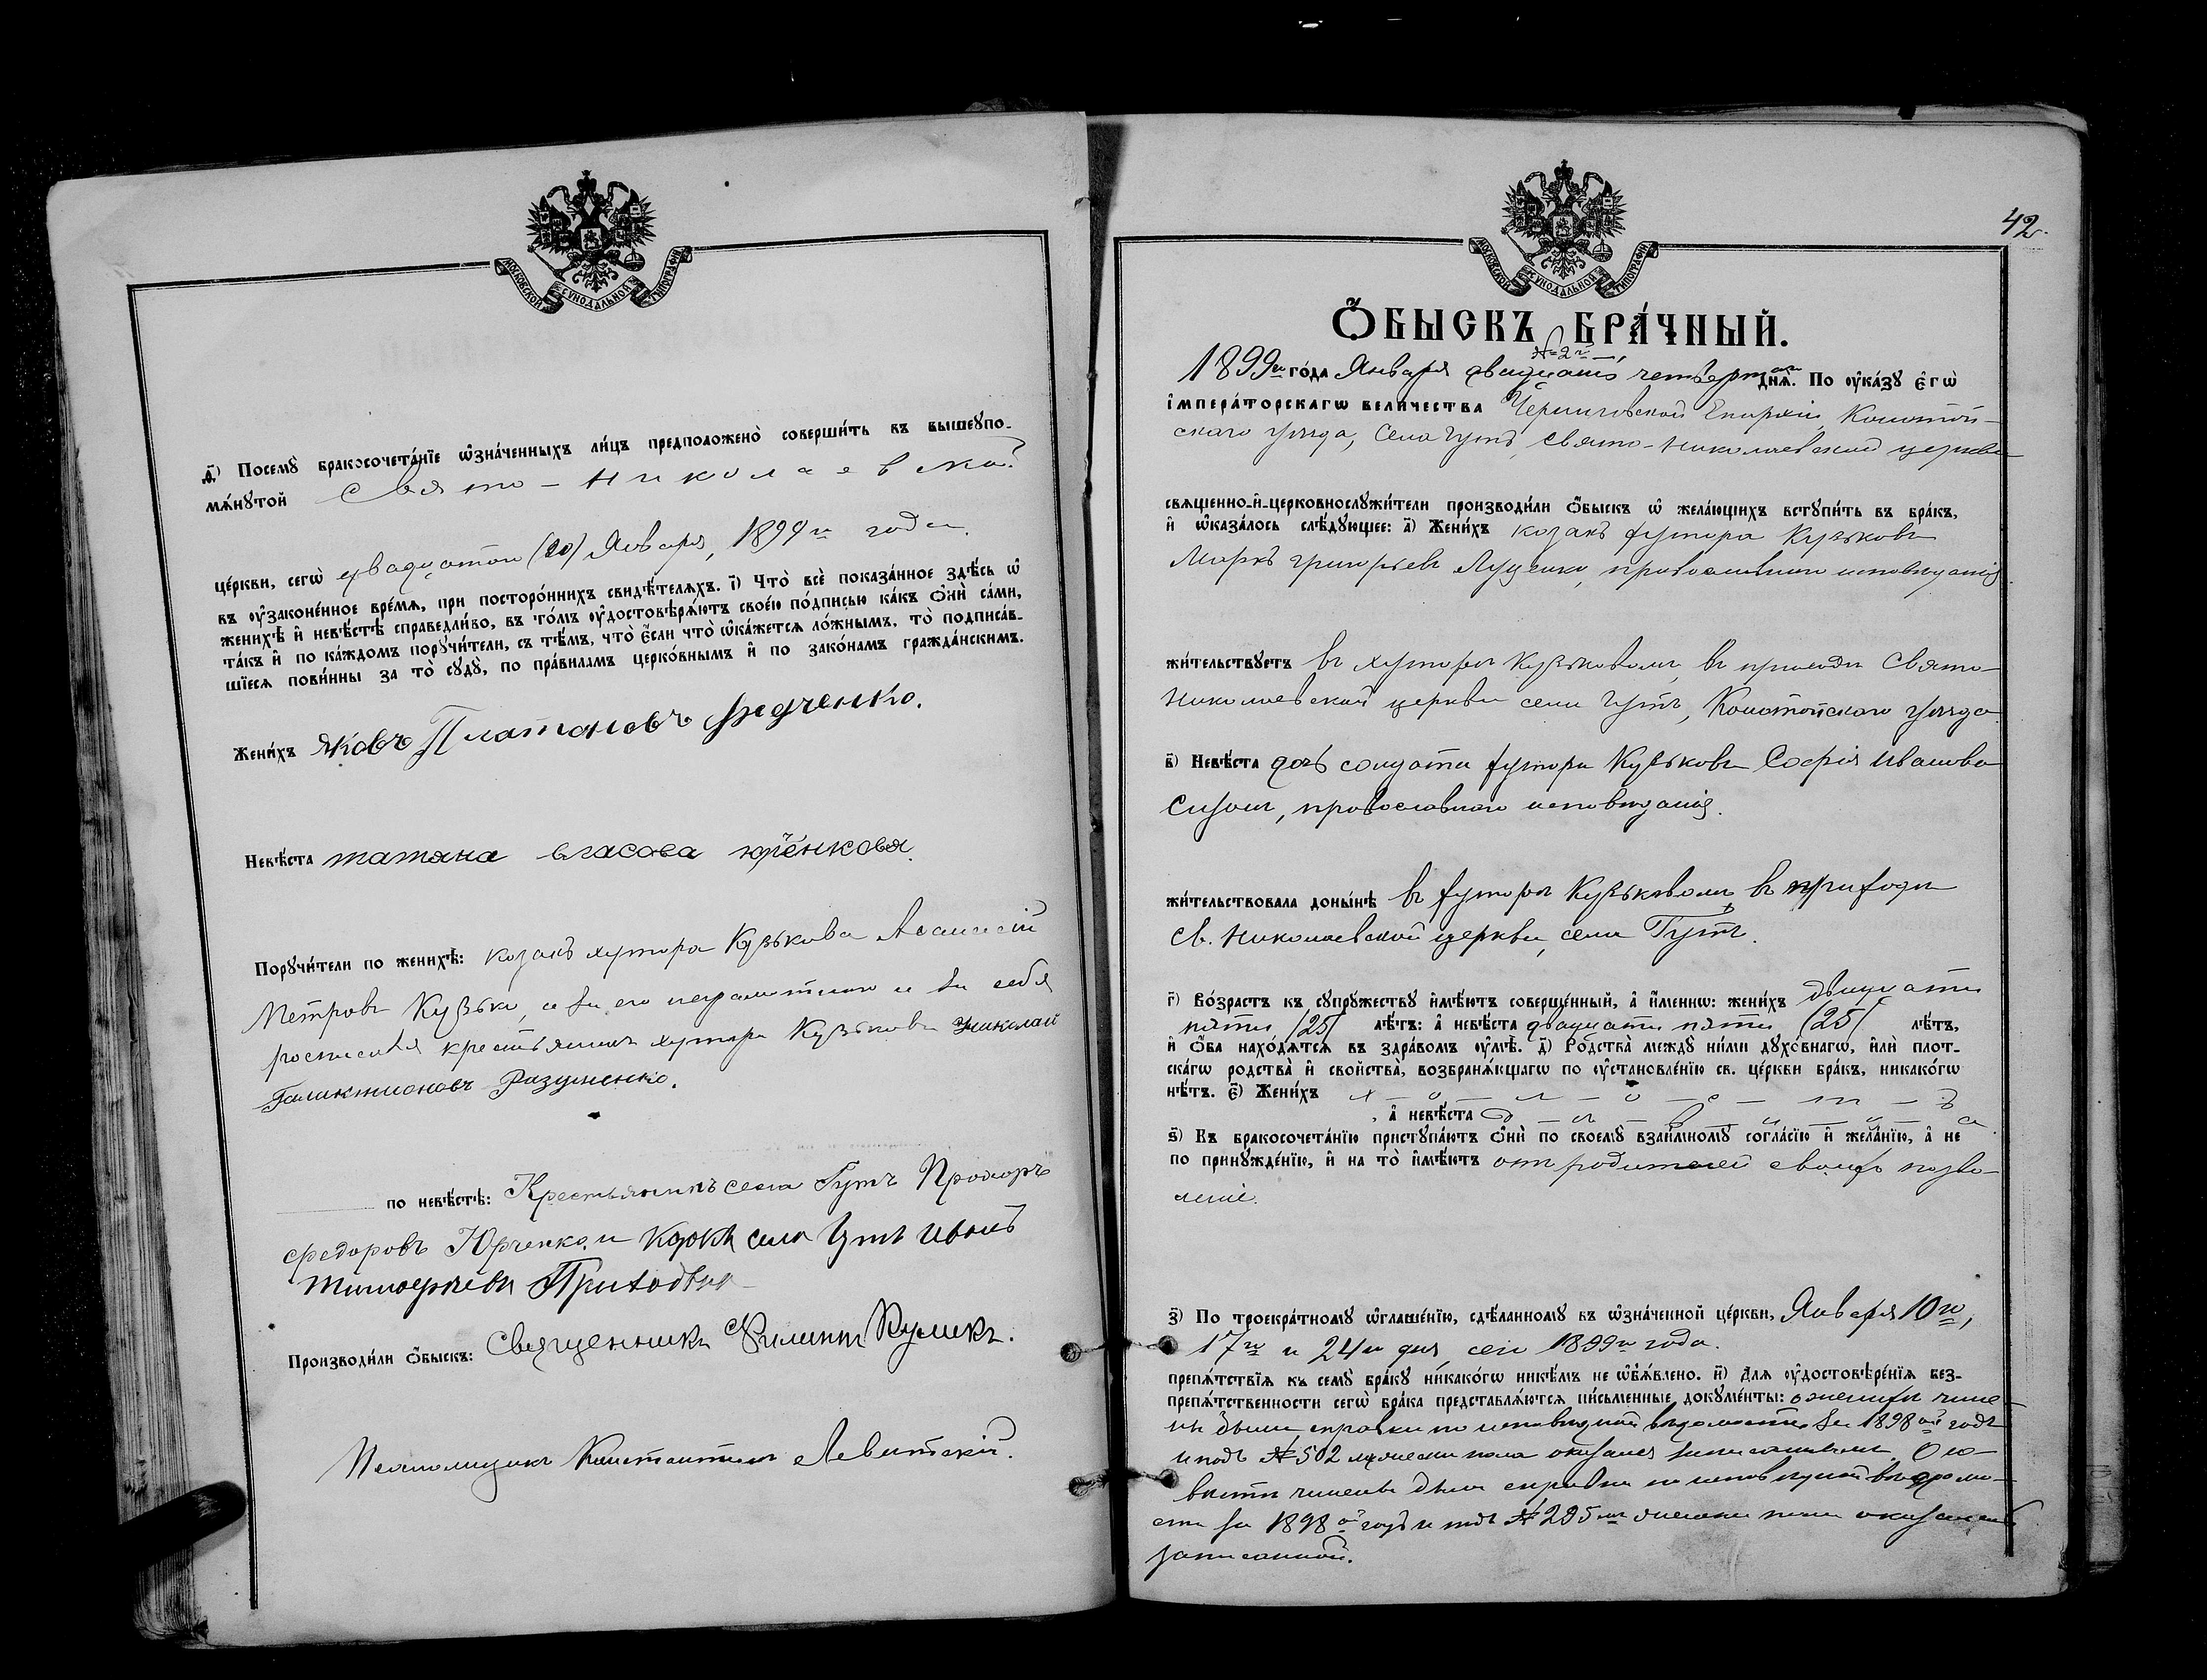 МОСКОВСКОЙ СѴНОДАЛЬНОЙ ТИПОГРАФІИ
ѳ҃) Посемꙋ̀ бракосочета́нїе ѡ҆зна́ченныхъ ли́цъ предположено̀ соверши́ть въ вышеꙋпо-
мѧ́нꙋтой Свято-Николаевской
це́ркви, сегѡ̀ двадцатого (20) Января, 1899 го года.
въ ᲂу҆законе́нное вре́мѧ, при посторо́ннихъ свидѣ́телѧхъ. і҃) Что̀ всѐ пока́занное здѣ́сь ѡ҆
женихѣ̀ и҆ невѣ́стѣ справедли́во, въ то́мъ ᲂу҆достовѣрѧ́ютъ свое́ю по́дписью ка́къ ѻ҆нѝ са́ми,
та́къ и҆ по ка́ждомъ порꙋчи́тели, съ тѣ́мъ, что̀ є҆́сли что̀ ѡ҆ка́жетсѧ ло́жнымъ, то̀ подписа́в-
шїесѧ пови́нны за то̀ сꙋдꙋ̀, по пра́виламъ церко́внымъ и҆ по зако́намъ гражда́нскимъ.
Жени́хъ Яковъ Платоновъ Федченко.
Невѣ́ста татяна власова юрченкова.
Порꙋчи́тели по женихѣ̀: козакъ хутора Кузькова Аѳанасій
Петровъ Кузько, а за его неграмотного и за себя
росписався крестьянинъ хутора Кузькова Николай
Галактионовъ Розуменко.
по невѣ́стѣ: Крестьянинъ села Гутъ Прохоръ
Федоровъ Юрченко и козакъ села Гутъ Иванъ
Тимофеевъ Приходько
Производи́ли ѻ҆́быскъ: Священникъ Филиппъ Куликъ.
Псаломщикъ Константинъ Левитскій.
42.
МОСКОВСКОЙ СѴНОДАЛЬНОЙ ТИПОГРАФІИ
Ѻ҆́БЫСКЪ БРА́ЧНЫЙ.
№ 2й
1899 го го́да Января двадцать четвертого днѧ̀. По ᲂу҆ка́зꙋ є҆гѡ̀
і҆мпера́торскагѡ вели́чества Черниговской Епархіи, Конотоп-
скаго уѣзда, села Гутъ, Свято-Николаевской церкви
свѧщенно-и҆-церковнослꙋжи́тели производи́ли ѻ҆́быскъ ѡ҆ жела́ющихъ встꙋпи́ть въ бра́къ,
и҆ ѡ҆каза́лось слѣ́дꙋющее: а҃) Жени́хъ козакъ хутора Кузькова
Маркъ Григорьевъ Луценко, православного исповѣданія.
жи́тельствꙋетъ въ хуторѣ Кузьковомъ, въ приходѣ Свято-
Николаевской церкви села Гутъ, Конотопскаго уѣзда
в҃) Невѣ́ста дочь солдата хутора Кузькова Софія Иванова
Сизон, православного исповѣданія.
жи́тельствовала доны́нѣ въ хуторѣ Кузьковомъ, въ приходѣ
Св. Николаевской церкви, села Гутъ.
г҃) Во́зрастъ къ сꙋпрꙋ́жествꙋ и҆мѣ́ютъ соверше́нный, а҆ и҆́менно: жени́хъ двадцати
пяти (25) лѣ́тъ: а҆ невѣ́ста двадцати пяти (25) лѣ́тъ,
и҆ ѻ҆́ба нахо́дѧтсѧ въ здра́вомъ ᲂу҆мѣ̀. д҃) Родства̀ междꙋ̀ ни́ми дꙋхо́внагѡ, и҆лѝ плот-
ска́гѡ родства̀ и҆ свойства̀, возбранѧ́ющагѡ по ᲂу҆становле́нїю св. це́ркви бра́къ, никако́гѡ
нѣ́тъ. є҃) Жени́хъ х-о-л-о-с-т-ъ
, а҆ невѣ́ста д-ѣ-в-и-ц-а.
ѕ҃) Къ бракосочета́нїю пристꙋпа́ютъ ѻ҆нѝ по своемꙋ̀ взаи́мномꙋ согла́сїю и҆ жела́нїю, а҆ не
по принꙋжде́нїю, и҆ на то̀ и҆мѣ́ютъ отъ родителей своихъ позво-
леніе.
з҃) По троекра́тномꙋ ѡ҆глаше́нїю, сдѣ́ланномꙋ въ ѡ҆зна́ченной це́ркви, Января 10 го,
17 го и 24 го дня, сего 1899 го года.
препѧ́тствїѧ къ семꙋ̀ бра́кꙋ никако́гѡ никѣ́мъ не ѡ҆б̾ѧ́влено. и҃) Длѧ ᲂу҆достовѣре́нїѧ без-
препѧ́тственности сегѡ̀ бра́ка представлѧ́ютсѧ пи́сьменные докꙋме́нты: о женихѣ чине-
на была справка по исповѣдной вѣдомости за 1898 ой годъ
и подъ № 502 мужеска пола оказался записаннымъ. О не-
вѣстѣ чинена была справка по исповѣдной вѣдомо-
сти за 1898 ой годъ и подъ № 295 мъ женска пола оказалась
записанной.